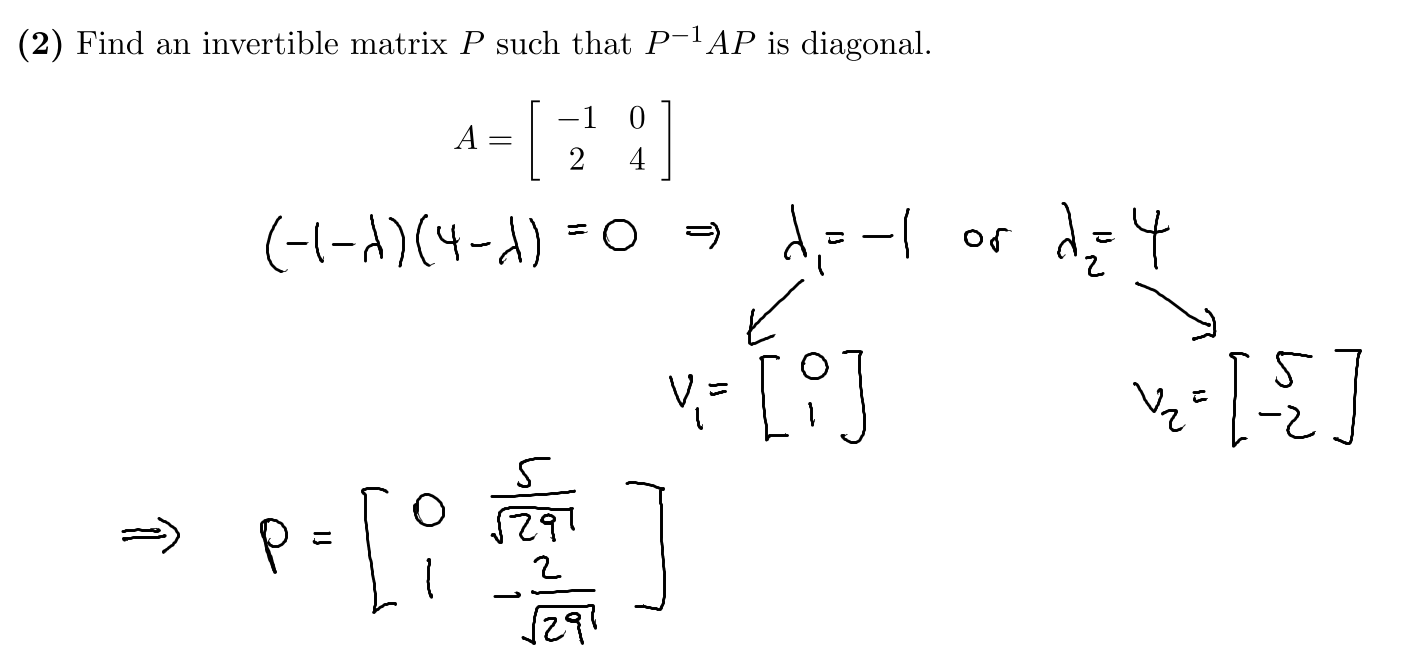 (2) Find an invertible matrix P such that P⁻¹AP is diagonal.
A = [ −1 0
2 4 ]
(-1-λ)(4-λ) = 0 ⇒ λ₁ = -1 or λ₂ = 4
v₁ = [ 0
1 ] v₂ = [ 5
-2 ]
⇒ P = [ 0 5/√29
1 -2/√29 ]